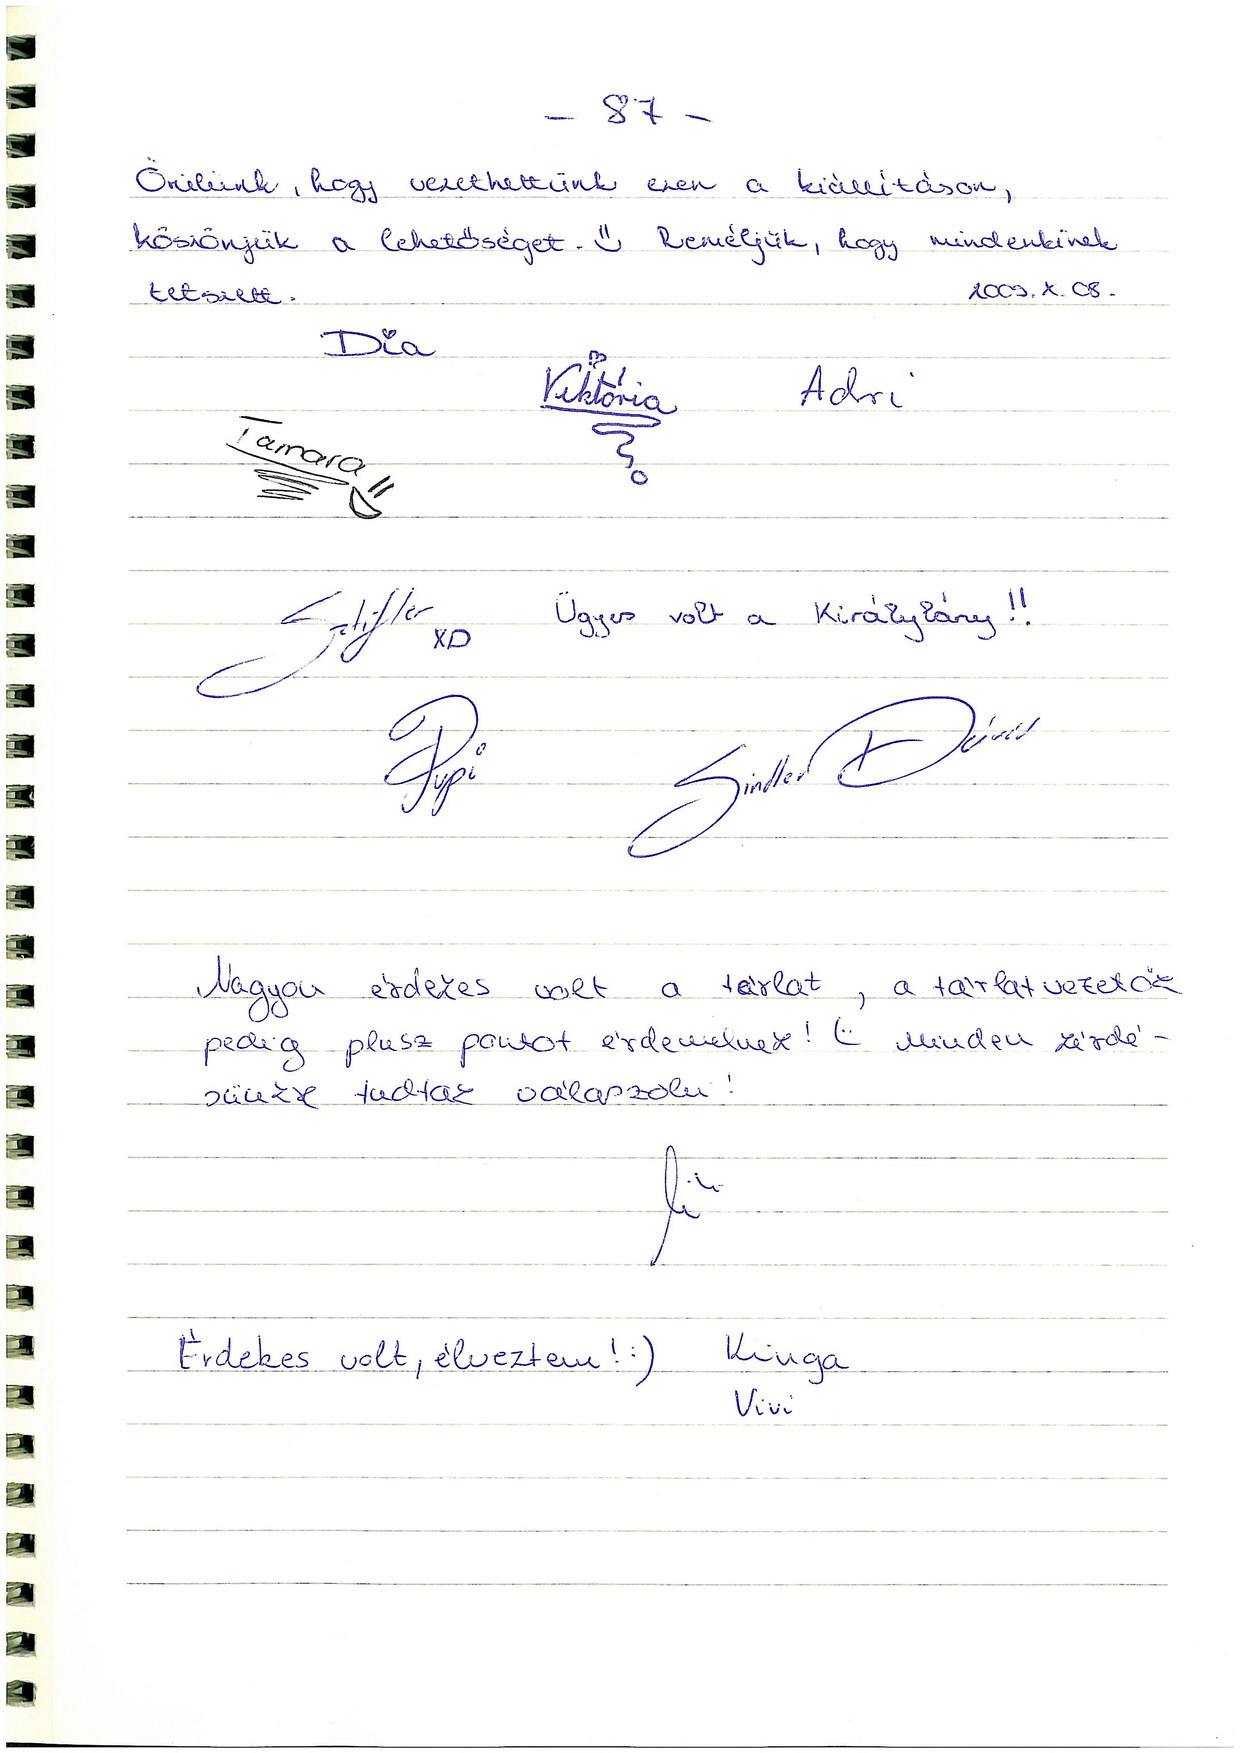 – 87 –
Örülünk, hogy vezethettünk ezen a kiállításon,
köszönjük a lehetőséget. Ü Reméljük, hogy mindenkinek
tetszett. 2009. X. 08.
Dia
Viktória Adri
Tamara
XD Ügyes volt a Királylány!!
Pupi Sindler Dávid
Nagyon érdekes volt a tárlat, a tárlatvezetők
pedig plusz pontot érdemelnek! Ü Minden kérdé-
sünkre tudtak válaszolni!
Érdekes volt, élveztem! :) Kinga
Vivi